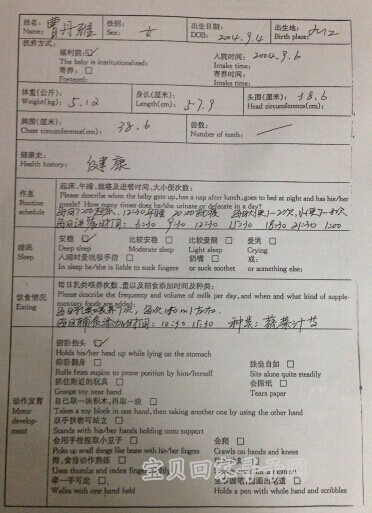 姓名: 曹丹雅 性别: 女 出生日期: 2004.9.4 出生地: 九江
Name: Sex: DOB: Birth place:
抚养方式:
福利院: ☑ 入院时间: 2004.9.6
The baby is institutionalized: Intake time:
寄养: □ 寄养时间:
Fostered: Intake time:
体重(公斤): 身长(厘米): 头围(厘米): 38.6
Weight(kg): 5.12 Length(cm): 57.9 Head circumference(cm):
胸围(厘米): 齿数:
Chest circumference(cm): 38.6 Number of teeth:
健康史: 健康
Health history:
作息 起床、午睡、就寝及进餐时间、大小便次数:
Routine Please describe when the baby gets up, has a nap after lunch, goes to bed at night and has his/her
schedule meals? How many times does he/she urinate or defecate in a day?
6:30 9:30 12:30 15:30 18:30 21:30
睡眠 安稳 ☑ 比较安稳 □ 比较爱醒 □ 爱哭 □
Sleep Deep sleep Moderate sleep Light sleep Crying
入睡时爱吮吸手指 □ 奶嘴 □ 或:
In sleep he/she is liable to suck fingers or suck soother or something else:
饮食情况 每日乳类喂养次数、量以及辅食添加时间及种类:
Eating Please describe the frequency and volume of milk per day, and when and what kind of supple-
mentary foods are added:
10:30 15:30 种类: 蔬菜汁等
俯卧抬头 ☑
Holds his/her head up while lying on the stomach
仰卧翻身 □ 独坐自如 □
Rolls from supine to prone position by him/herself Sits alone quite steadily
抓住附近的玩具 □ 会撕纸 □
Grasps toy near hand Tears paper
动作发育 自己取一块积木,再取一块 □
Motor Takes a toy block in one hand, then taking another one by using the other hand
develop- 双手扶物可站立 □
ment Stands with his/her hands holding onto support
会用手指捏取小豆子 □ 会爬 □
Picks up small things like beans with his/her fingers Crawls on hands and knees
拇、食指动作熟练 □
Uses thumb and index finger
牵一手可走 □
Walks with one hand held Holds a pen with whole hand and scribbles
宝贝回家